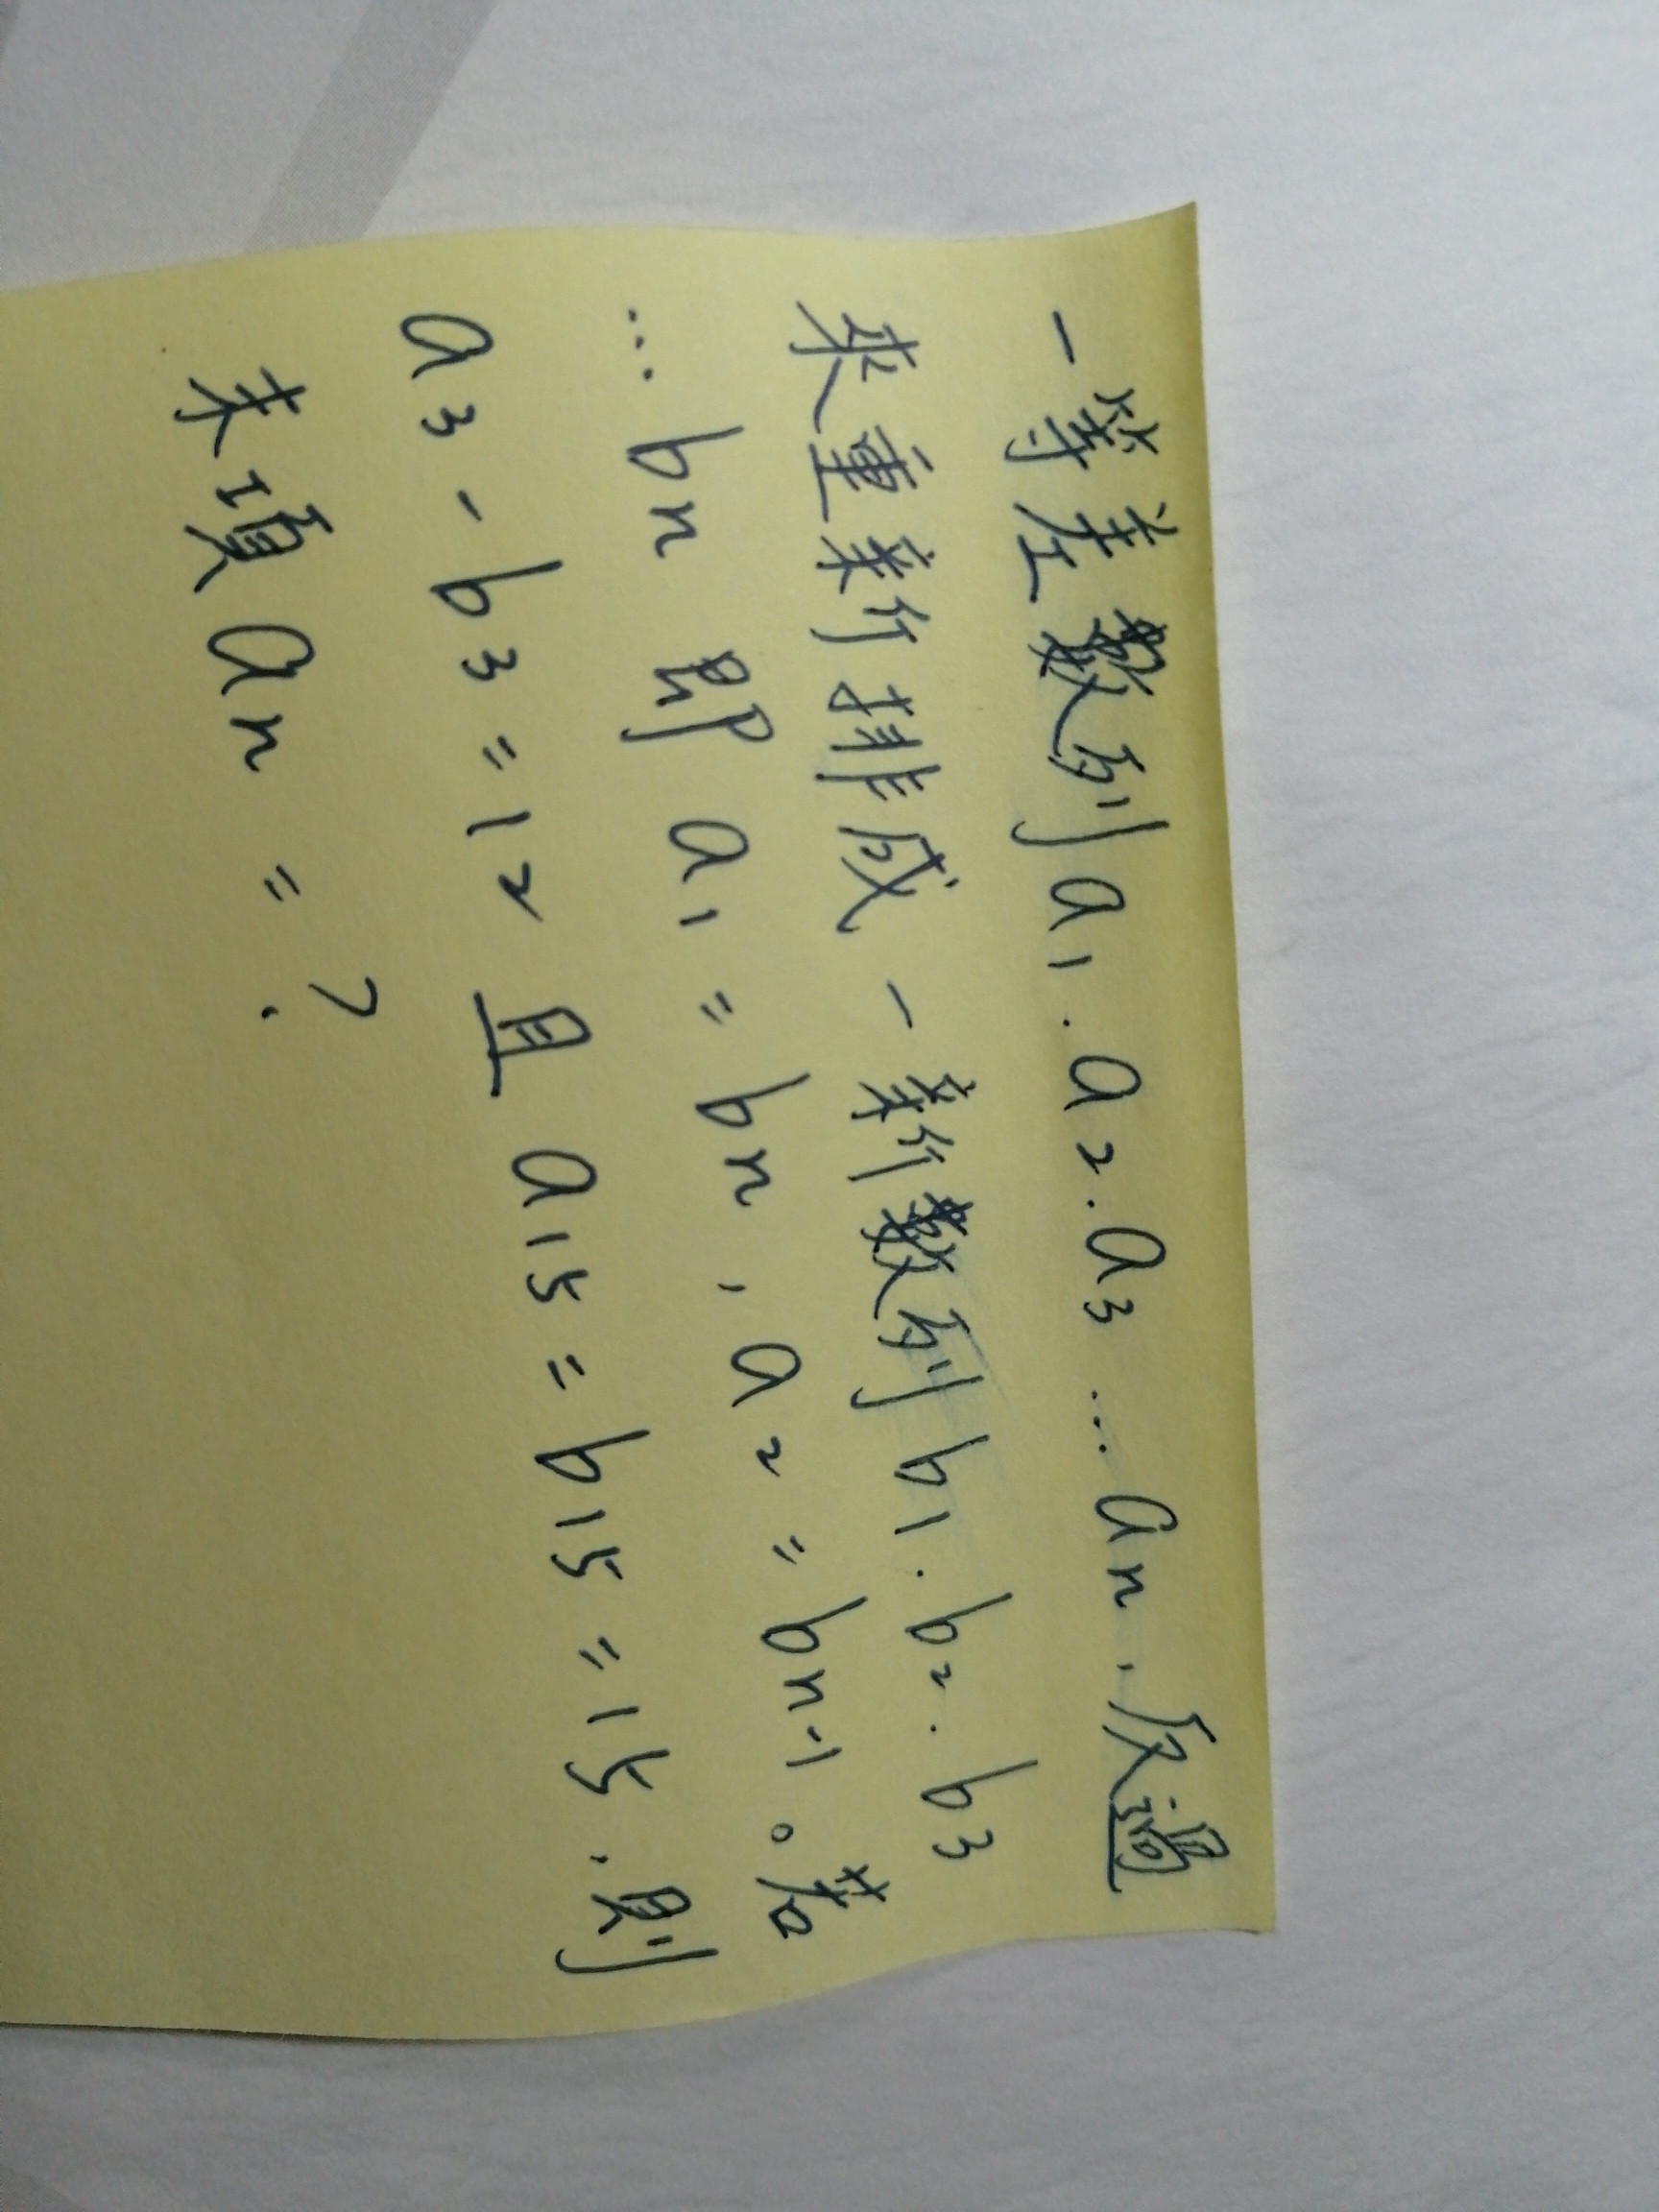 一等差數列a1.a2.a3…an,反過
來重新排成一新數列b1.b2.b3
…bn 即 a1=bn,a2=bn-1。若
a3-b3=12 且 a15=b15=15,則
末項an=?